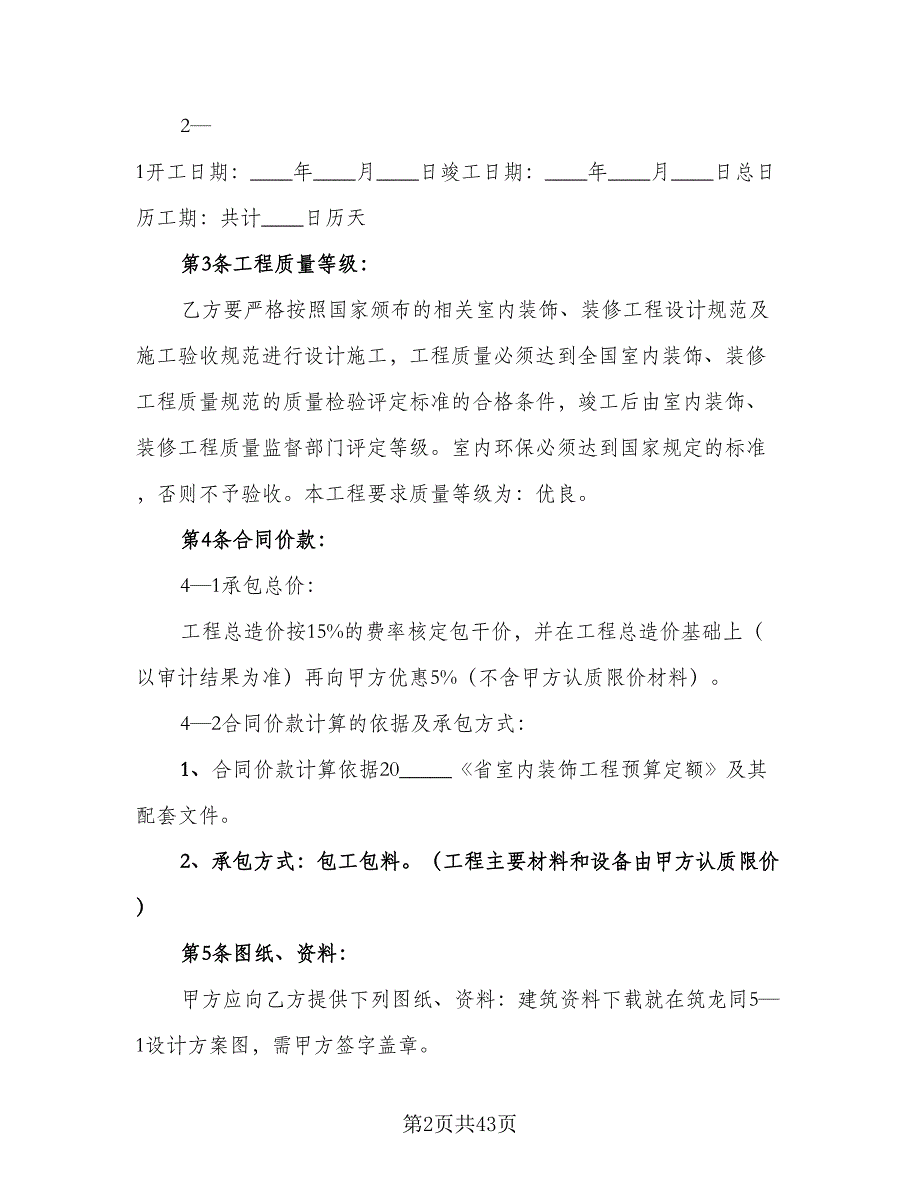 2—
1开工日期：_____年_____月_____日竣工日期：_____年_____月_____日总日
历工期：共计_____日历天
第3条工程质量等级：
乙方要严格按照国家颁布的相关室内装饰、装修工程设计规范及
施工验收规范进行设计施工，工程质量必须达到全国室内装饰、装修
工程质量规范的质量检验评定标准的合格条件，竣工后由室内装饰、
装修工程质量监督部门评定等级。室内环保必须达到国家规定的标准
，否则不予验收。本工程要求质量等级为：优良。
第4条合同价款：
4—1承包总价：
工程总造价按15%的费率核定包干价，并在工程总造价基础上（
以审计结果为准）再向甲方优惠5%（不含甲方认质限价材料）。
4—2合同价款计算的依据及承包方式：
1、合同价款计算依据20______《省室内装饰工程预算定额》及其
配套文件。
2、承包方式：包工包料。（工程主要材料和设备由甲方认质限价
）
第5条图纸、资料：
甲方应向乙方提供下列图纸、资料：建筑资料下载就在筑龙同5—
1设计方案图，需甲方签字盖章。
第2页共43页